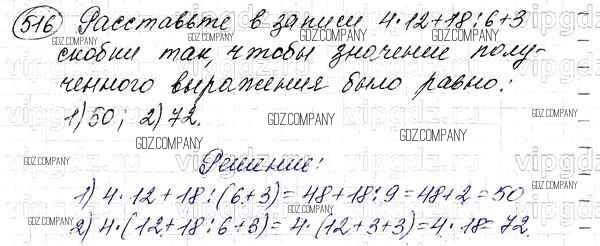 516 Расставьте в записи 4·12+18:6+3
скобки так, чтобы значение полу-
ченного выражения было равно:
1) 50; 2) 72.
Решение:
1) 4·12+18:(6+3)=48+18:9=48+2=50
2) 4·(12+18:6+3)=4·(12+3+3)=4·18=72.